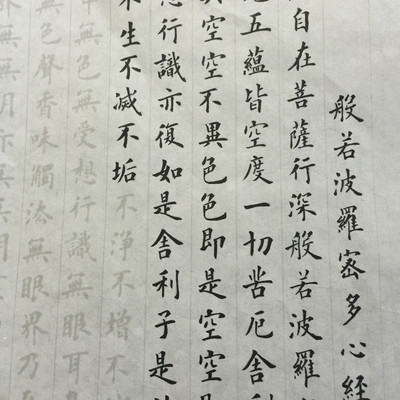 般若波羅蜜多心經
自在菩薩行深般若波羅
五蘊皆空度一切苦厄舍利
空空不異色色即是空空
想行識亦復如是舍利子是
不生不滅不垢不淨不增不
無色無受想行識無眼耳
無色聲香味觸法無眼界乃
無無明亦無無明